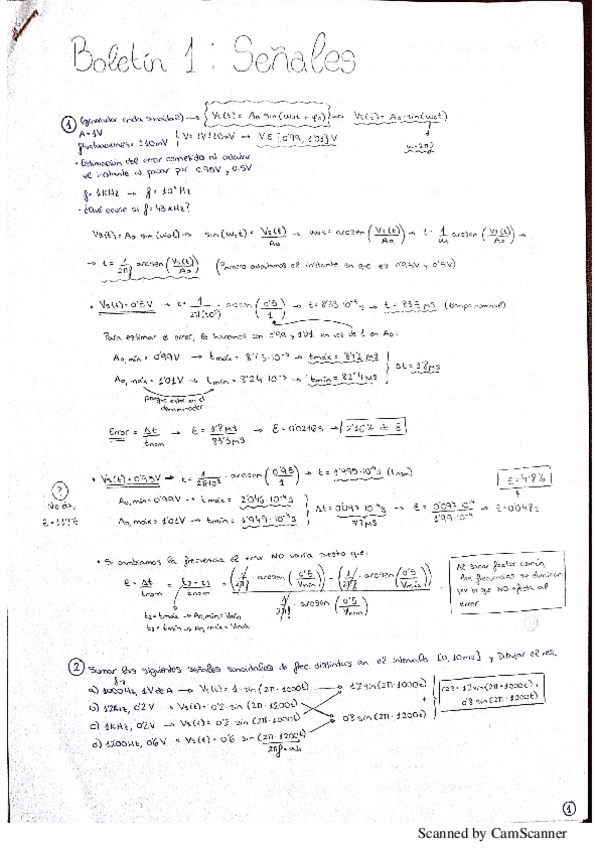 Boletín 1: Señales
① Generador onda senoidal → Vs(t) = A₀ sin(ω₀t + φ₀) → Vs(t) = A₀·sin(ω₀t)
A = 1V
fluctuaciones: ±10mV V = 1V±10mV → V ∈ [0'99, 1'01] V ω=2πf
• Estimación del error cometido al calcular
el instante al pasar por 0.95V, 0.5V
f = 1KHz → f = 10³Hz
• ¿Qué ocurre si f = 43KHz?
Vs(t) = A₀ sin(ω₀t) → sin(ω₀t) = Vs(t)/A₀ → ω₀t = arcsen(Vs(t)/A₀) → t = 1/ω₀ arcsen(Vs(t)/A₀) →
→ t = 1/2πf arcsen(Vs(t)/A₀) (Primero calculamos el instante en que es 0'95V y 0'5V)
• Vs(t) = 0'5V → t = 1/2π(10³) · arcsen(0'5/1) → t = 8'33·10⁻⁵ → t = 83'3 μs (tiempo nominal)
Para estimar el error, lo haremos con 0'99 y 1'01 en vez de 1 en A₀.
A₀,mín = 0'99V → tmáx = 8'43·10⁻⁵ → tmáx = 84'2 μs
A₀,máx = 1'01V → tmín = 8'24·10⁻⁵ → tmín = 82'4 μs Δt = 1'8μs
porque está en el
denominador
Error = Δt/tnom → ε = 1'8μs/83'3μs → ε = 0'0216 → 2'16% de ε
• Vs(t) = 0'95V → t = 1/2π10³ · arcsen(0'95/1) → t = 1'995·10⁻⁴s (tnom) ε = 4'8%
?
No da,
A₀,mín = 0'99V → tmáx = 2'046·10⁻⁴s
A₀,máx = 1'01V → tmín = 1'949·10⁻⁴s Δt = 0'097·10⁻⁴s → ε = 0'097·10⁻⁴/1'99·10⁻⁴ → ε = 0'048
• Si cambiamos la frecuencia el error NO varía puesto que:
ε = Δt/tnom = t₂ - t₁/tnom = (1/2πf · arcsen(0'5/Vmín)) - (1/2πf · arcsen(0'5/Vmáx)) / 1/2πf · arcsen(0'5/Vnom)
t₂ = tmáx → A₀,mín = Vmín
Al sacar factor común,
las frecuencias se eliminan
por lo que NO afecta al
error
② Sumar las siguientes señales senoidales de frec. distintas en el intervalo [0, 10ms] y Dibujar el res.
a) 1000Hz, 1V de A → Vs(t) = 1·sin(2π·1000t) 1'2 sin(2π·1000t)
b) 1'2KHz, 0'2V → Vs(t) = 0'2 sin(2π·1200t) +
c) 1KHz, 0'2V → Vs(t) = 0'2·sin(2π·1000t) 0'8 sin(2π·1200t)
d) 1200Hz, 0'6V → Vs(t) = 0'6 sin(2π·1200t)
2πf = ω₀
res = 1'2 sin(2π·1000t) +
0'8 sin(2π·1200t)
1
Scanned by CamScanner